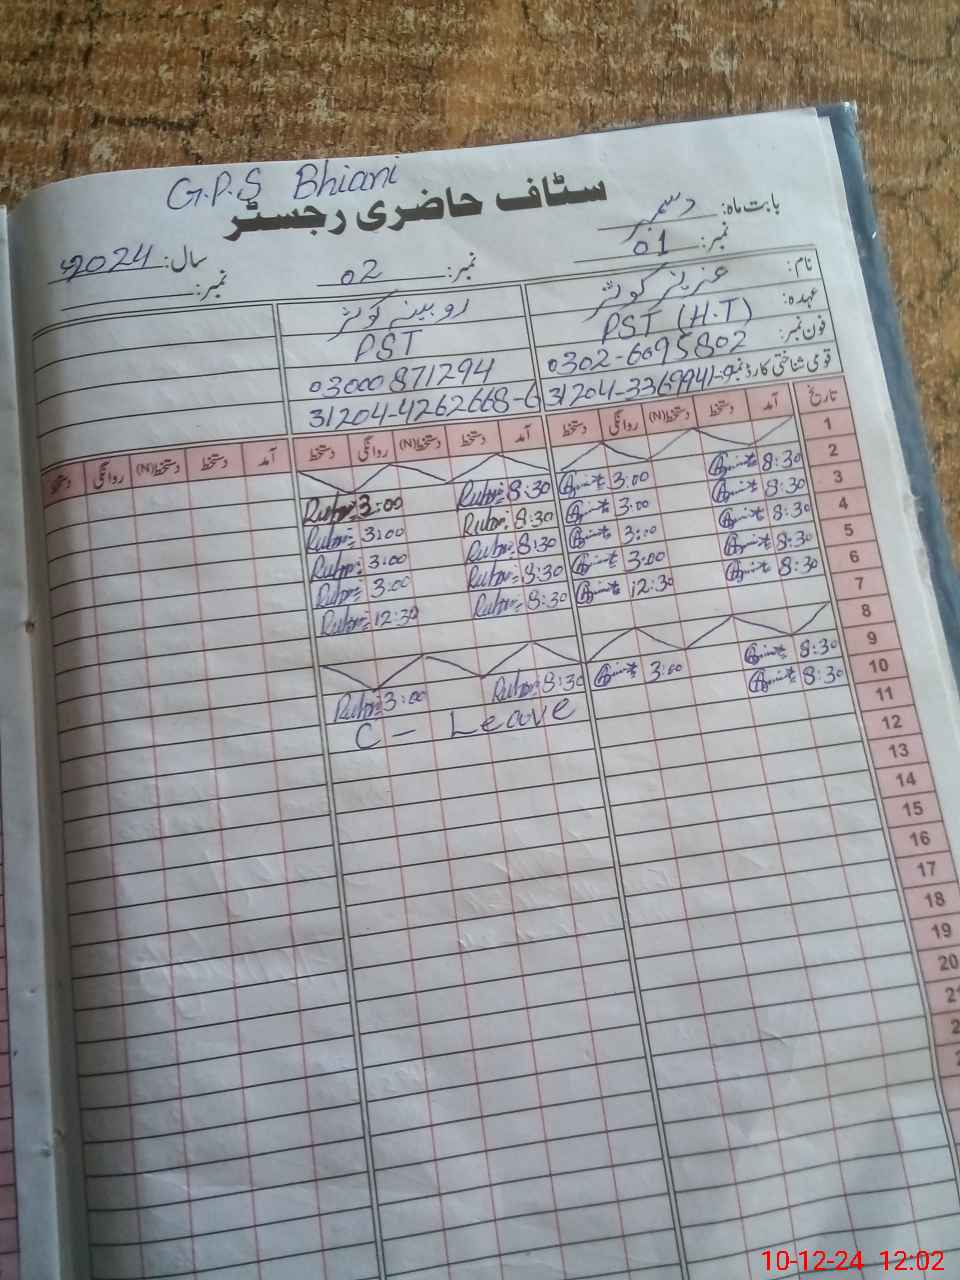 G.P.S Bhiani
سٹاف حاضری رجسٹر
بابت ماہ: دسمبر
سال: 2024ء
نمبر: 01 نمبر: 02 نمبر:
نام: عزیز کوثر روبینہ کوثر
عہدہ: PST (H.T) PST
فون نمبر: 0302-6095802 03000871294
قومی شناختی کارڈ نمبر: 31204-3369941-9 31204-4262668-6
تاریخ آمد دستخط دستخط(N) روانگی دستخط آمد دستخط دستخط(N) روانگی دستخط آمد دستخط دستخط(N) روانگی دستخط
1
2 8:30 3:00 8:30 3:00
3 8:30 3:00 8:30 3:00
4 8:30 3:00 8:30 3:00
5 8:30 3:00 8:30 3:00
6 8:30 12:30 8:30 12:30
7
8
9 8:30 3:00 8:30 3:00
10 8:30 C - Leave
11
12
13
14
15
16
17
18
19
20
10-12-24 12:02